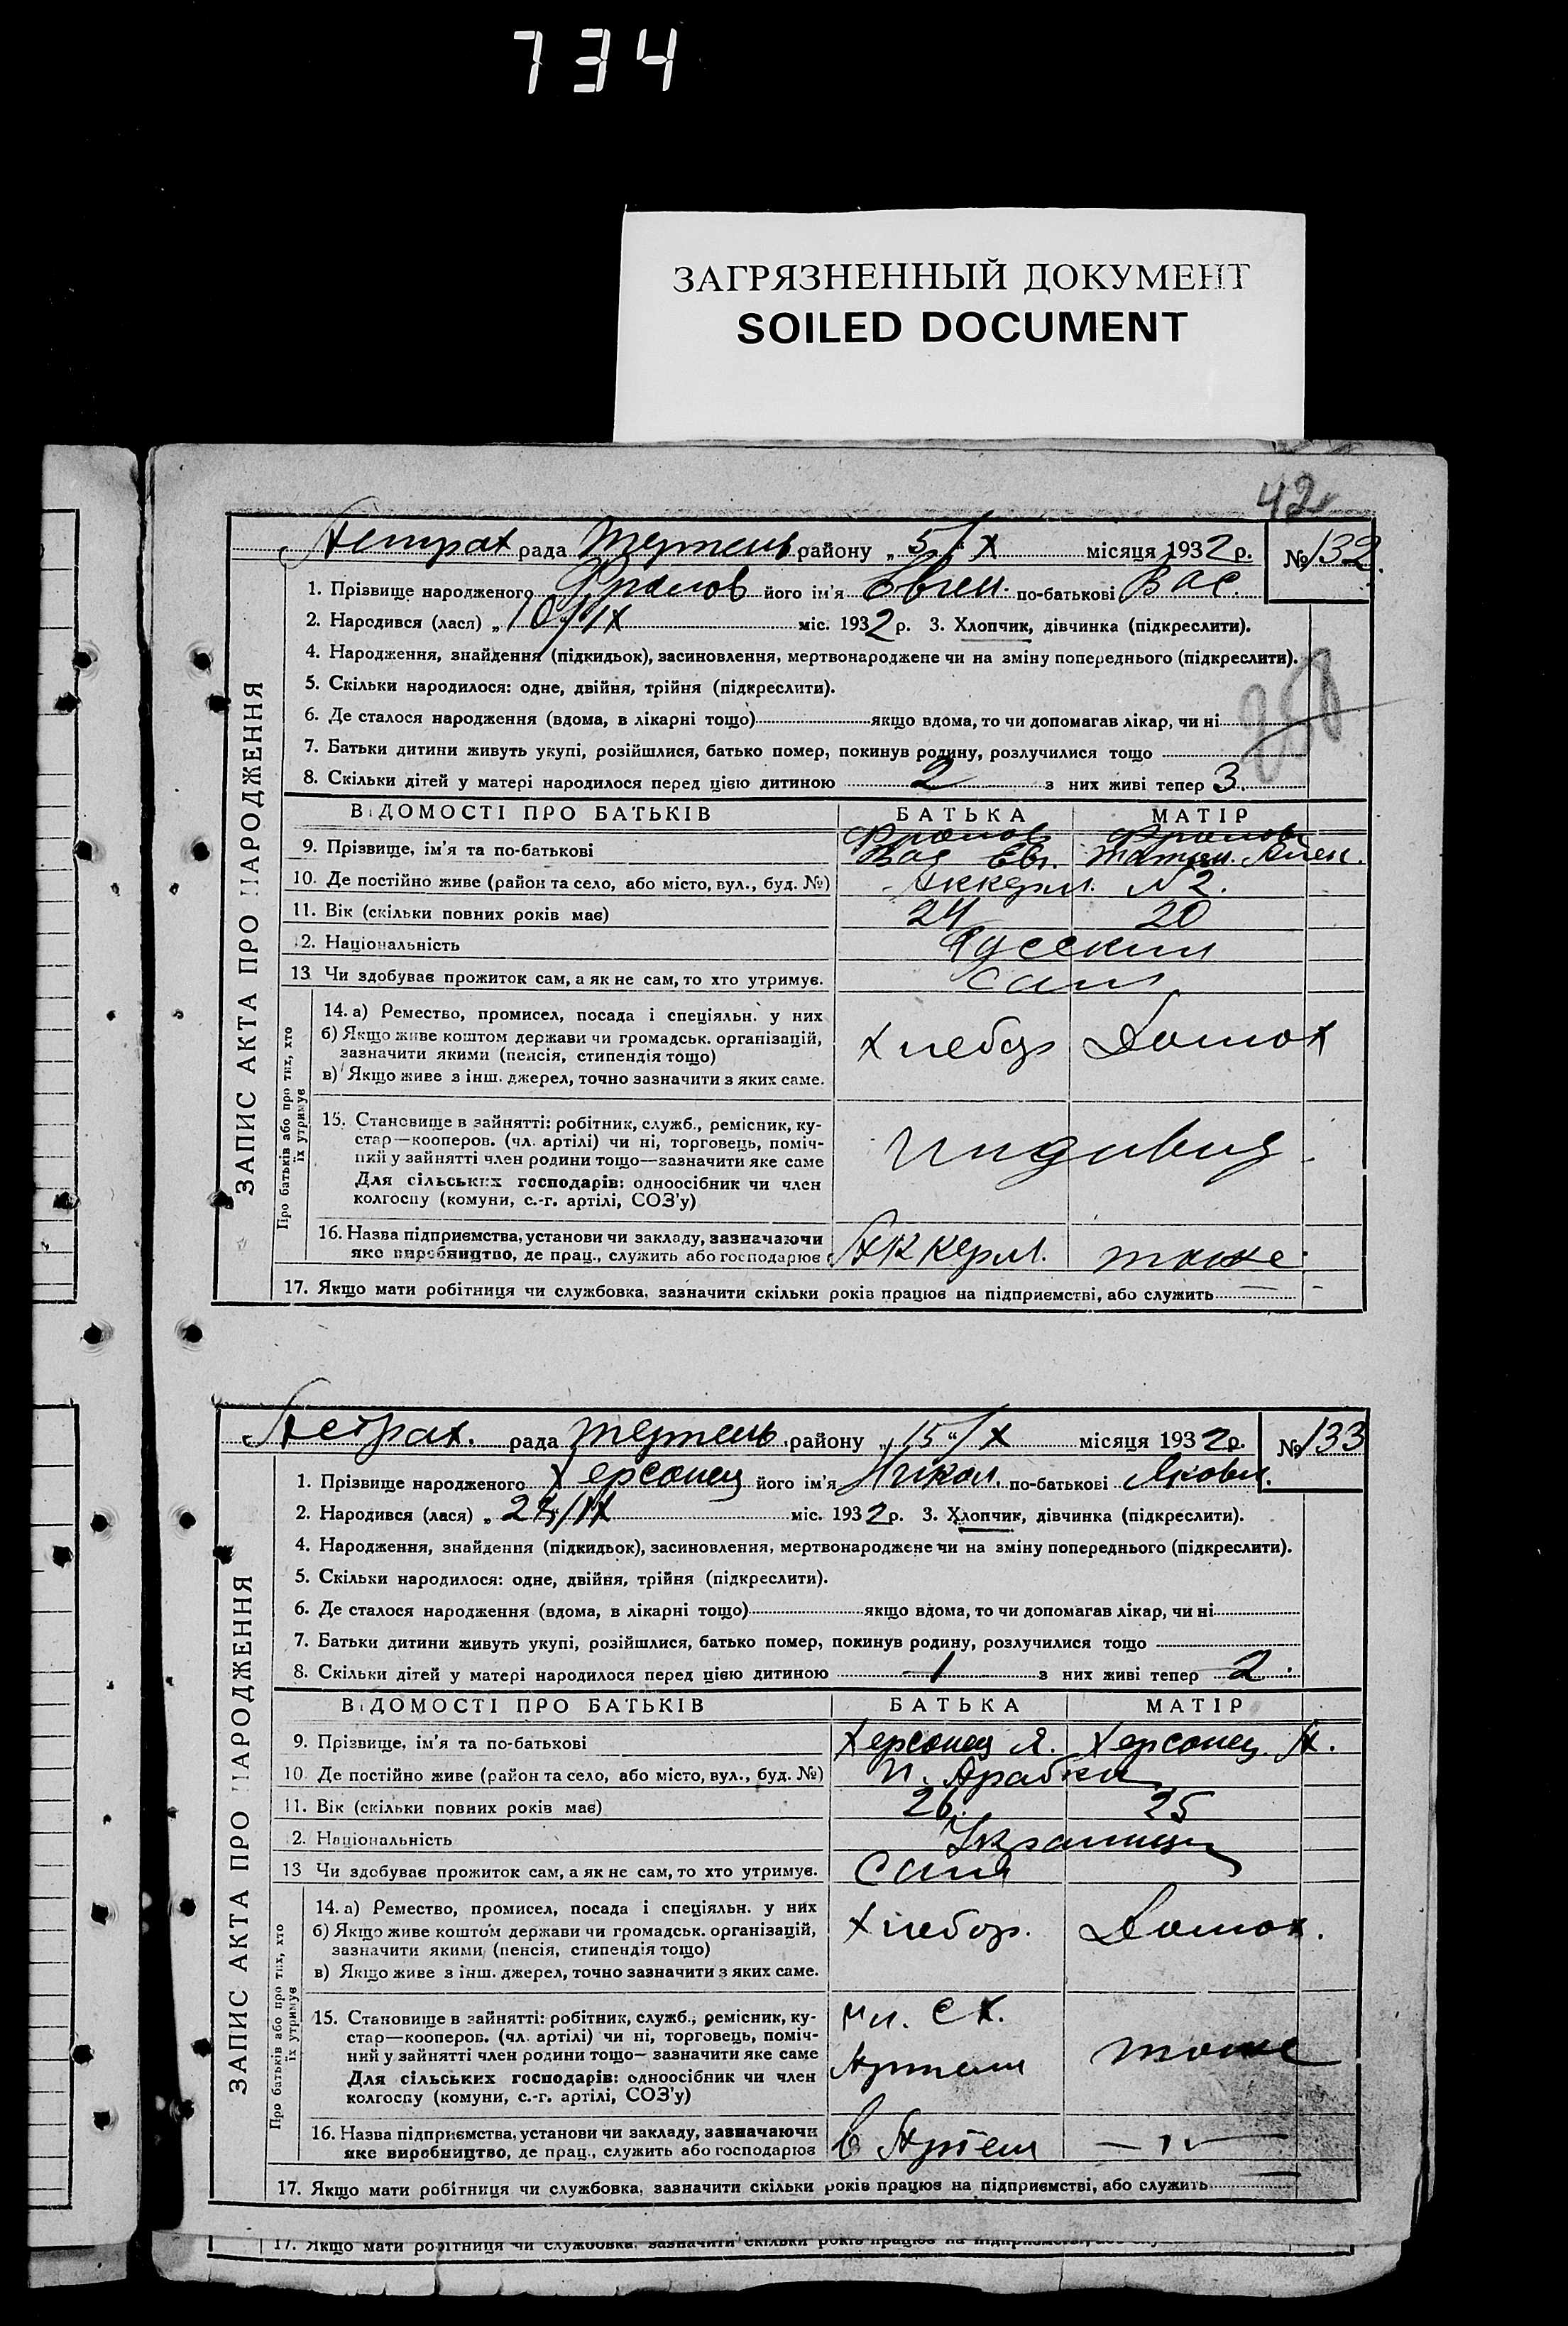 734
ЗАГРЯЗНЕННЫЙ ДОКУМЕНТ
SOILED DOCUMENT
42
рада району „ 5/X місяця 1932 р. № 132.
1. Прізвище народженого його ім'я Евген. по-батькові Вас.
2. Народився (лася) „ 10/IX міс. 1932 р. 3. Хлопчик, дівчинка (підкреслити).
4. Народження, знайдення (підкидьок), засиновлення, мертвонароджене чи на зміну попереднього (підкреслити).
5. Скільки народилося: одне, двійня, трійня (підкреслити).
6. Де сталося народження (вдома, в лікарні тощо) якщо вдома, то чи допомагав лікар, чи ні
7. Батьки дитини живуть укупі, розійшлися, батько помер, покинув родину, розлучилися тощо
8. Скільки дітей у матері народилося перед цією дитиною 2 з них живі тепер 3.
ВІДОМОСТІ ПРО БАТЬКІВ БАТЬКА МАТІР
9. Прізвище, ім'я та по-батькові
10. Де постійно живе (район та село, або місто, вул., буд. №) Аккерм. N2.
11. Вік (скільки повних років має) 24 20
12. Національність Русскии
13 Чи здобуває прожиток сам, а як не сам, то хто утримує. Сам
14. а) Ремество, промисел, посада і спеціяльн. у них
б) Якщо живе коштом держави чи громадськ. організацій,
зазначити якими (пенсія, стипендія тощо)
в) Якщо живе з інш. джерел, точно зазначити з яких саме.
Хлебор Домох
15. Становище в зайнятті: робітник, служб., ремісник, ку-
стар—кооперов. (чл. артілі) чи ні, торговець, поміч-
ний у зайнятті член родини тощо—зазначити яке саме
Для сільських господарів: одноосібник чи член
колгоспу (комуни, с.-г. артілі, СОЗ'у)
Индивид.
16. Назва підприємства, установи чи закладу, зазначаючи
яке виробництво, де прац., служить або господарює Аккерм. тоже
17. Якщо мати робітниця чи службовка, зазначити скільки років працює на підприємстві, або служить
ЗАПИС АКТА ПРО НАРОДЖЕННЯ
Про батьків або про тих, хто
їх утримує
Астрах. рада району „ 15“/X місяця 1932 р. № 133
1. Прізвище народженого Херсонец його ім'я Никол. по-батькові Якови.
2. Народився (лася) „ міс. 1932 р. 3. Хлопчик, дівчинка (підкреслити).
4. Народження, знайдення (підкидьок), засиновлення, мертвонароджене чи на зміну попереднього (підкреслити).
5. Скільки народилося: одне, двійня, трійня (підкреслити).
6. Де сталося народження (вдома, в лікарні тощо) якщо вдома, то чи допомагав лікар, чи ні
7. Батьки дитини живуть укупі, розійшлися, батько помер, покинув родину, розлучилися тощо
8. Скільки дітей у матері народилося перед цією дитиною 1 з них живі тепер 2.
ВІДОМОСТІ ПРО БАТЬКІВ БАТЬКА МАТІР
9. Прізвище, ім'я та по-батькові Херсонец Я. Херсонец. А.
10. Де постійно живе (район та село, або місто, вул., буд. №)
11. Вік (скільки повних років має) 26. 25
12. Національність Украинцы
13 Чи здобуває прожиток сам, а як не сам, то хто утримує. Сами
14. а) Ремество, промисел, посада і спеціяльн. у них
б) Якщо живе коштом держави чи громадськ. організацій,
зазначити якими (пенсія, стипендія тощо)
в) Якщо живе з інш. джерел, точно зазначити з яких саме.
Хлебор. Домох.
15. Становище в зайнятті: робітник, служб., ремісник, ку-
стар—кооперов. (чл. артілі) чи ні, торговець, поміч-
ний у зайнятті член родини тощо—зазначити яке саме
Для сільських господарів: одноосібник чи член
колгоспу (комуни, с.-г. артілі, СОЗ'у)
Чл. СХ.
Артели тоже
16. Назва підприємства, установи чи закладу, зазначаючи
яке виробництво, де прац., служить або господарює в Артели —"—
17. Якщо мати робітниця чи службовка, зазначити скільки років працює на підприємстві, або служить
ЗАПИС АКТА ПРО НАРОДЖЕННЯ
Про батьків або про тих, хто
їх утримує
17. Якщо мати робітниця чи службовка, зазначити скільки років працює на